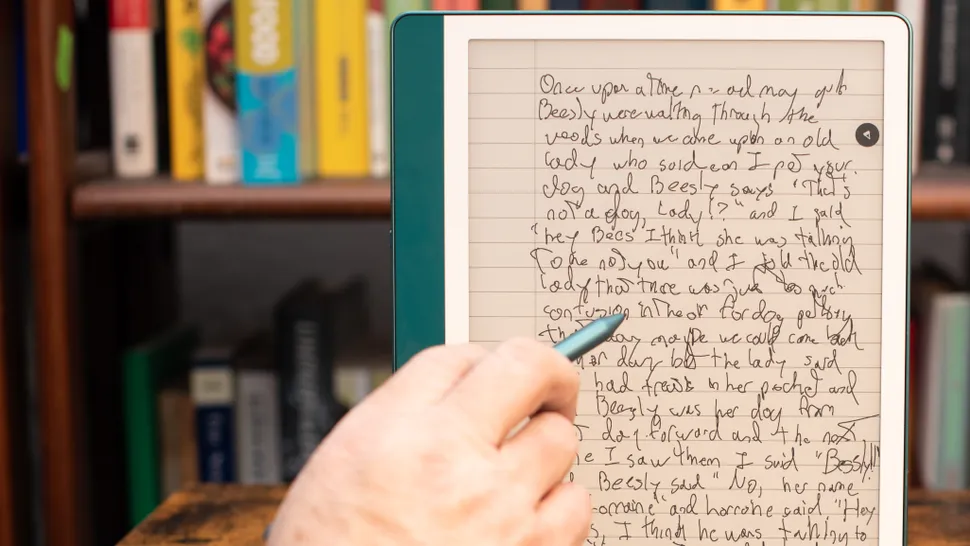 Once upon a time me and my gurl
Beesly were walking through the
woods when we came upon an old
lady who said can I pet your
dog and Beesly says "That's
not a dog, Lady!?" and I said
"hey Bees I think she was talking
to me not you" and I told the old
lady that there was just too much
confusion in the air for dog petting
that day maybe we could come back
day but the lady said
had treats in her pocket and
Beesly was her dog from
day forward and the next
I saw them I said "Beesly!!"
Beesly said "No, her name
Lorraine" and Lorraine said "Hey
I think he was talking to